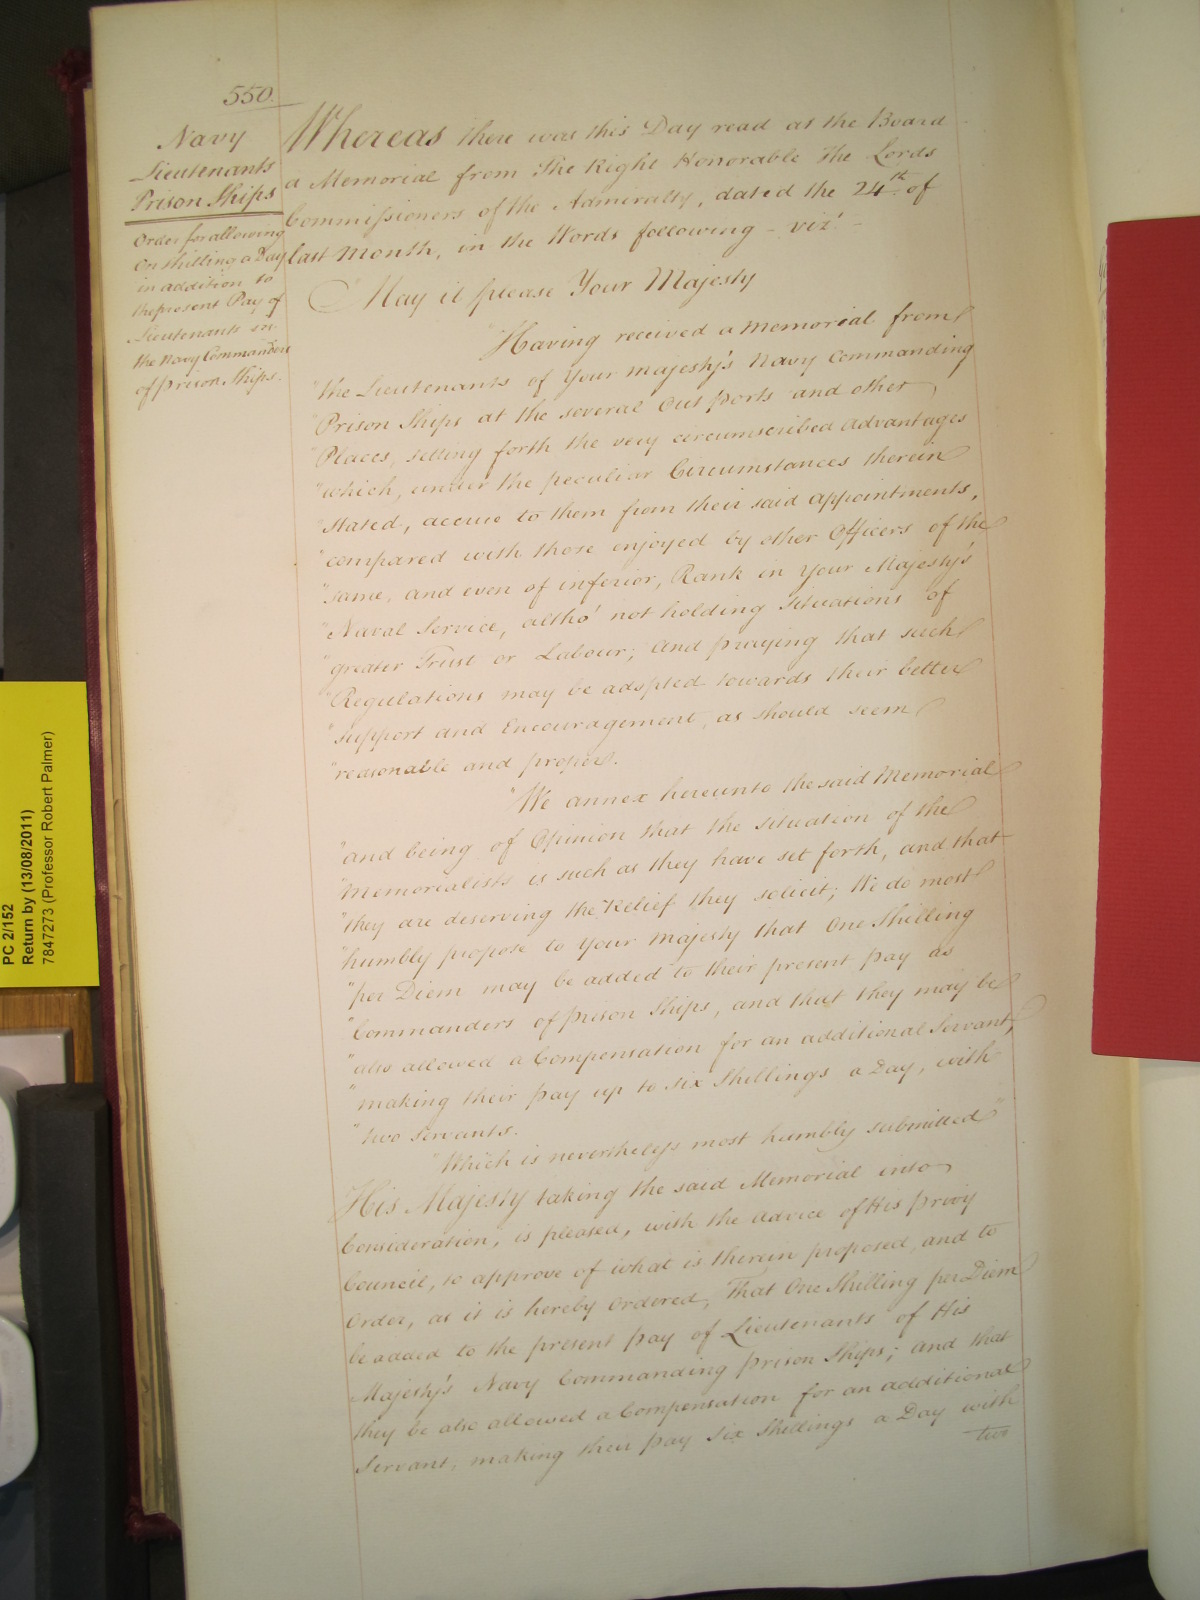 550.
Navy
Lieutenants
Prison Ships
Order for allowing
On shilling a Day
in addition to
the present Pay of
Lieutenants in
the Navy Commanding
of prison Ships.
Whereas there was this Day read at the Board
a Memorial from The Right Honorable the Lords
Commissioners of the Admiralty, dated the 24th of
last Month, in the Words following - vizt. -
May it please Your Majesty
"Having received a Memorial from
"the Lieutenants of Your Majesty's Navy Commanding
"Prison Ships at the several Out ports and other
"Places, setting forth the very circumscribed advantages
"which, under the peculiar Circumstances therein
"stated, accrue to them from their said appointments,
"compared with those enjoyed by other Officers of the
"same, and even of inferior, Rank in Your Majesty's
"Naval Service, altho' not holding Situations of
"greater Trust or Labour; and praying that such
"Regulations may be adopted towards their better
"support and Encouragement, as should seem
"reasonable and proper.
"We annex hereunto the said Memorial
"and being of Opinion that the situation of the
"Memorealists is such as they have set forth, and that
"they are deserving the Relief they solicit; We do most
"humbly propose to Your Majesty that One Shilling
"per Diem may be added to their present pay as
"Commanders of prison Ships, and that they may be
"also allowed a Compensation for an additional Servant,
"making their pay up to six Shillings a Day, with
"two Servants.
"Which is nevertheless most humbly submitted"
His Majesty taking the said Memorial into
Consideration, is pleased, with the advice of His privy
Council, to approve of what is therein proposed, and to
Order, as it is hereby Ordered, That One Shilling per Diem
be added to the present pay of Lieutenants of His
Majesty's Navy Commanding prison Ships; and that
they be also allowed a Compensation for an additional
Servant, making their pay six Shillings a Day with
two
PC 2/152
Return by (13/08/2011)
7847273 (Professor Robert Palmer)